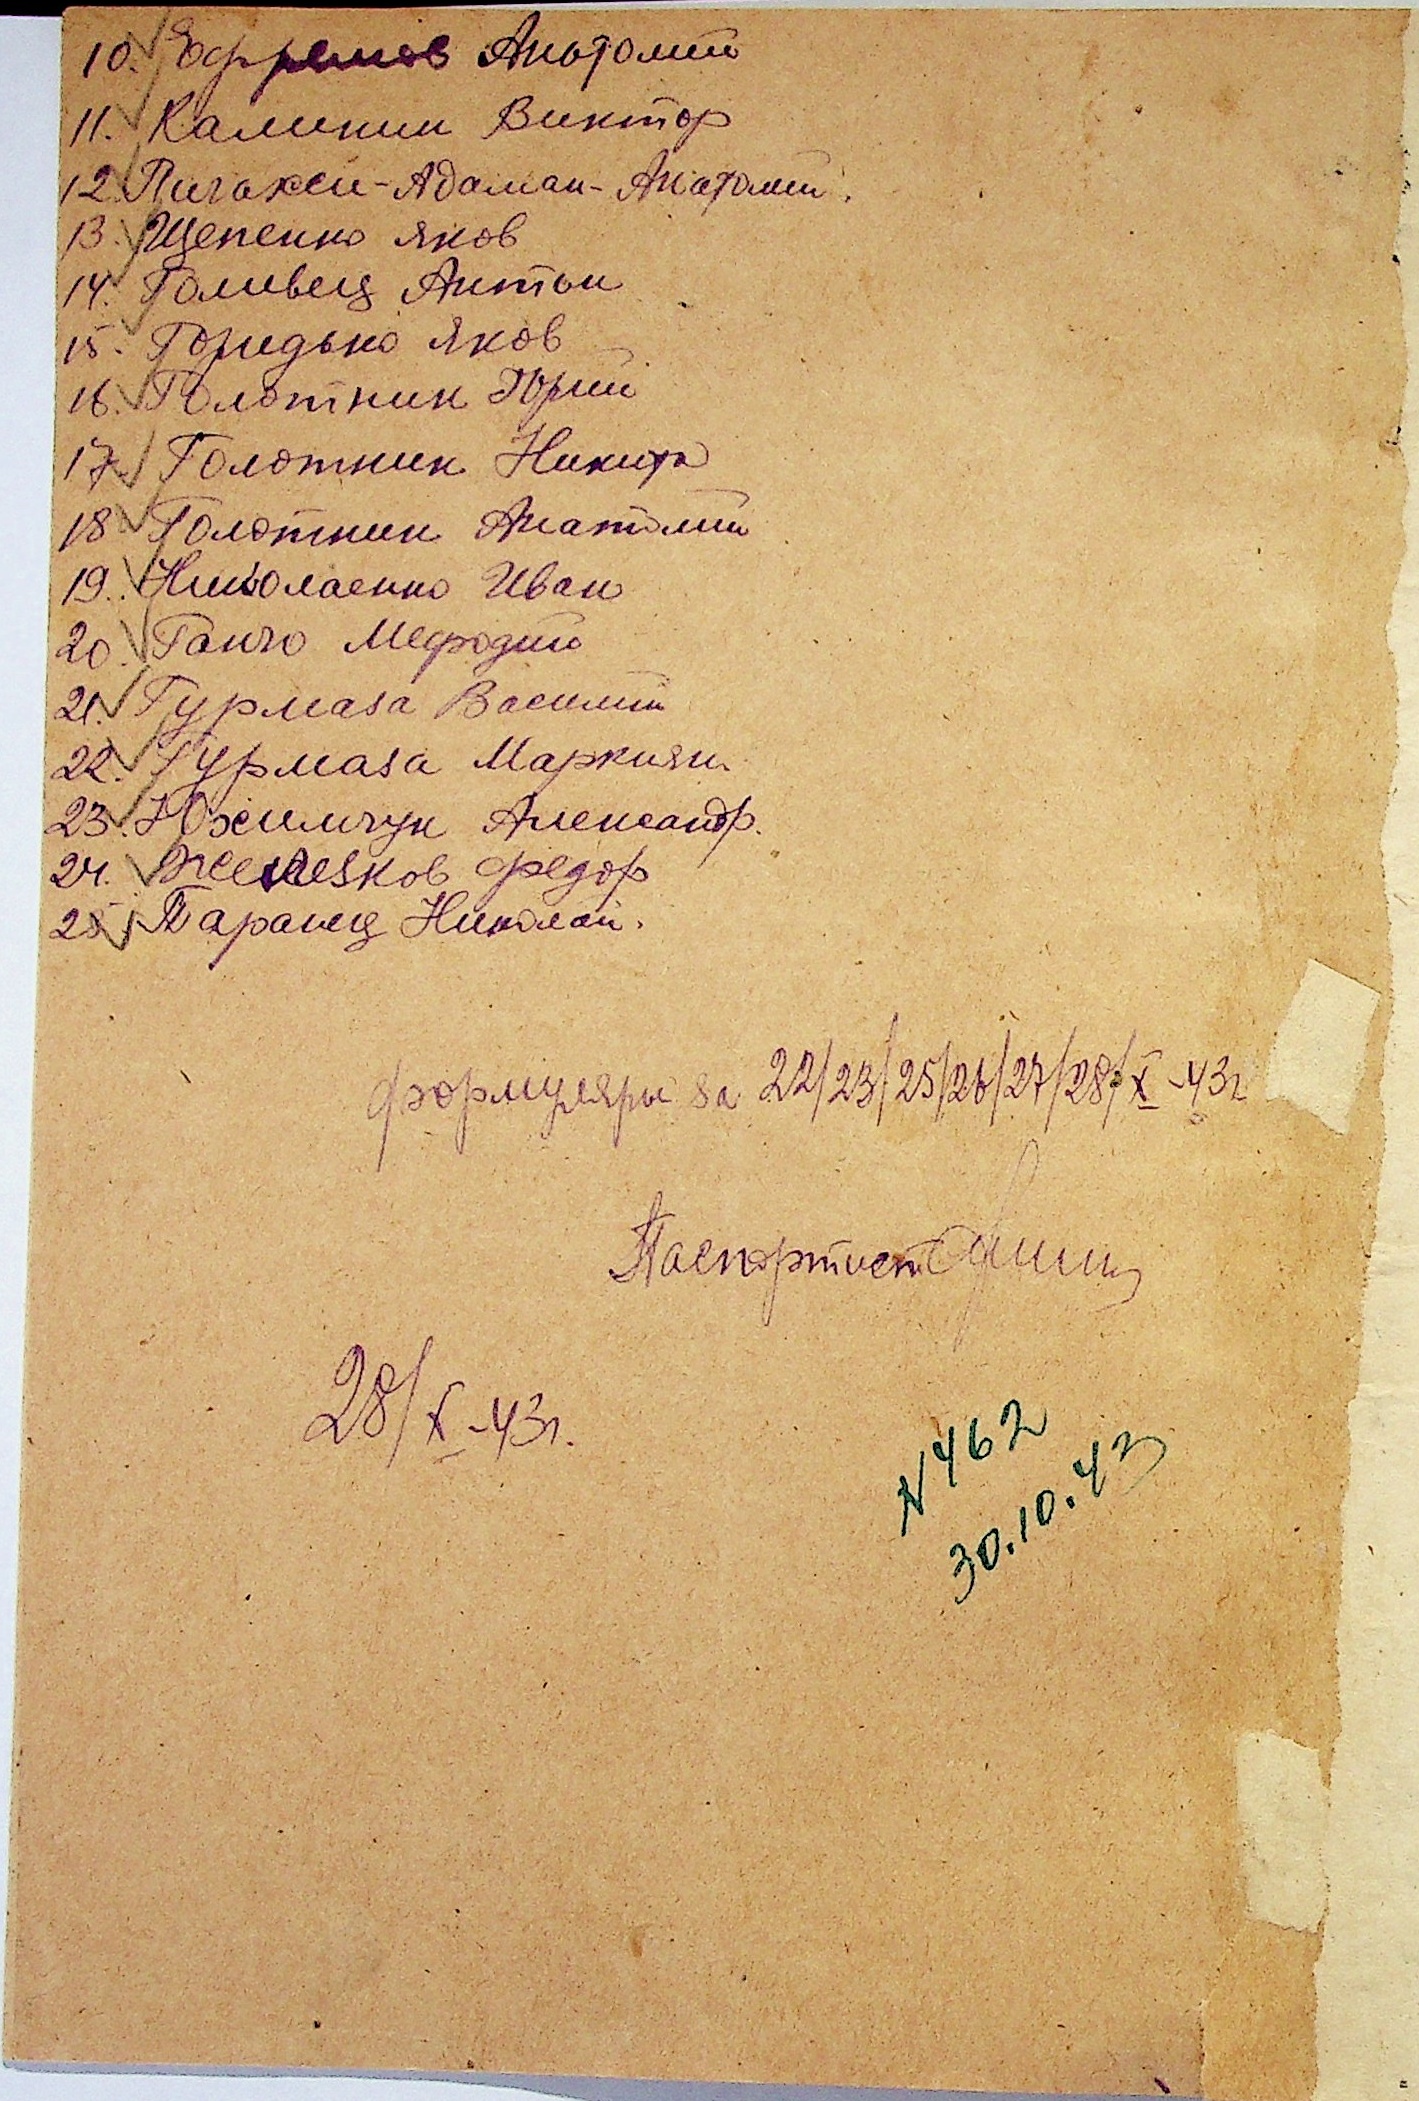 10. Ефремов Анатолий
11. Калинин Виктор
12. Пигахеи-Адаман-Анатолий.
13. Щепенко Яков
14. Голивец Антон
15. Горидько Яков
16. Голотник Юрий
17. Голотник Никита
18. Голотник Анатолий
19. Николаенко Иван
20. Ганчо Мефодий
21. Гурмаза Василий
22. Гурмаза Маркиян.
23. Юхимчук Александр.
24. Железков Федор
25. Паранец Николай.
формуляры за 22/23/25/26/27/28/X-43г
Паспортист
28/X-43г.
N462
30.10.43